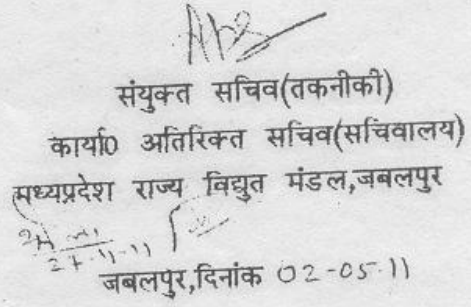 संयुक्त सचिव(तकनीकी)
कार्या0 अतिरिक्त सचिव(सचिवालय)
मध्यप्रदेश राज्य विद्युत मंडल,जबलपुर
27-11-11
जबलपुर,दिनांक 02-05-11